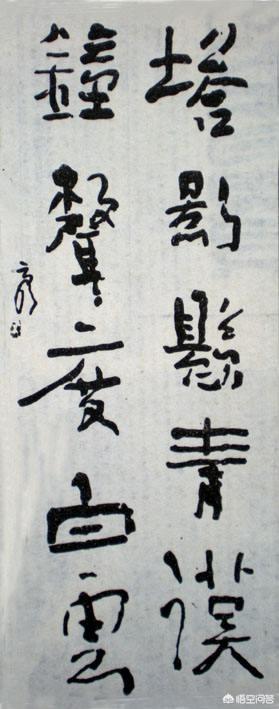 塔影懸青漢
鐘聲度白雲
悟空问答